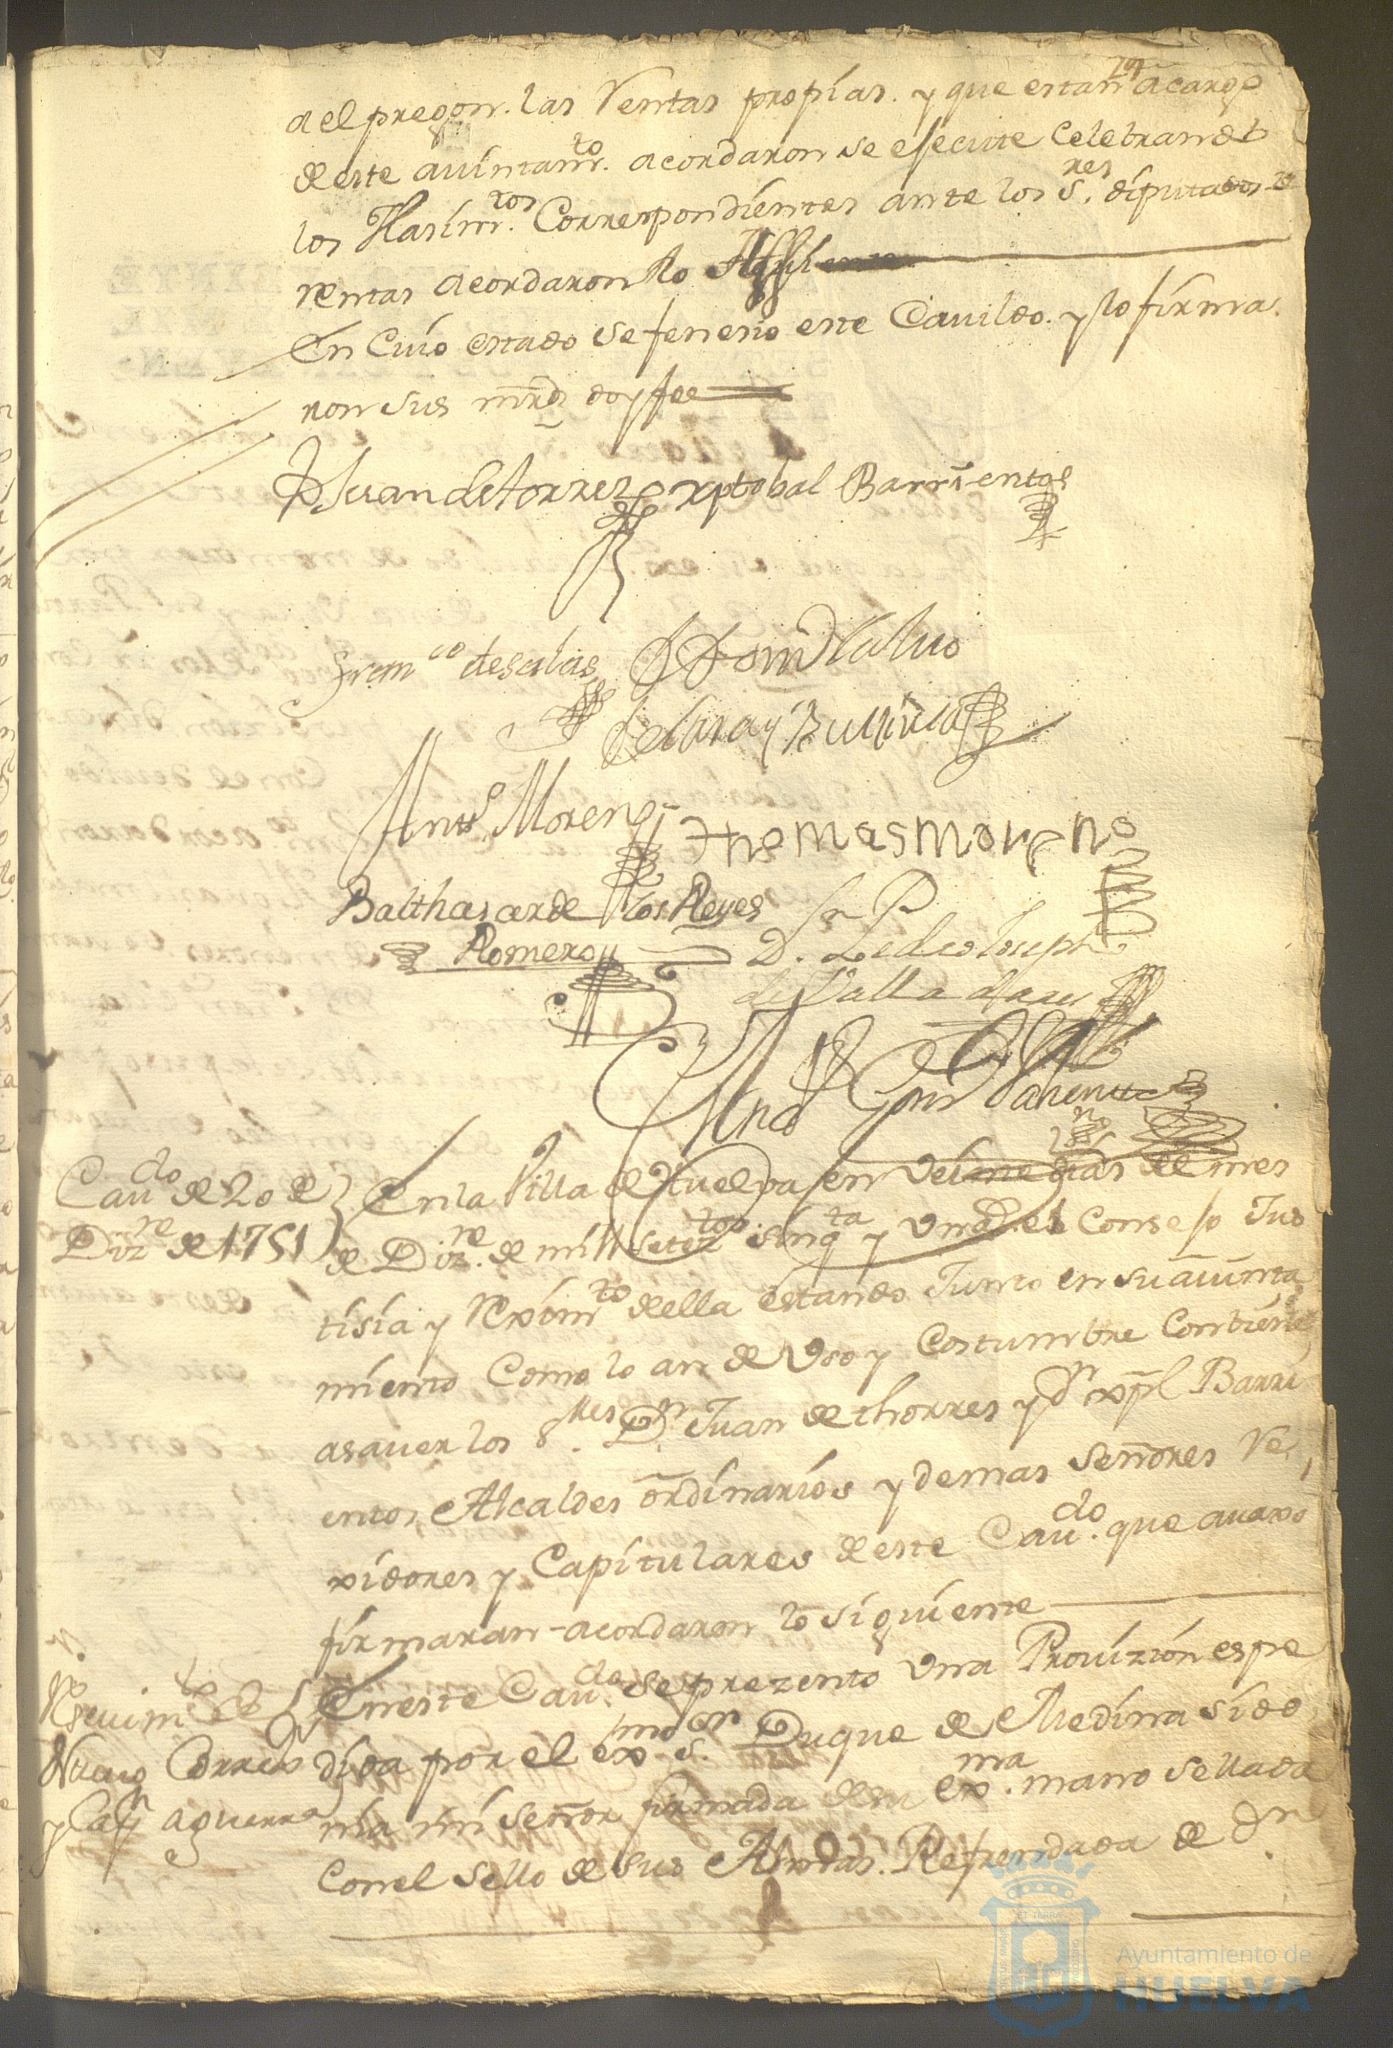 a el pregon. las Rentas propias. y que estan a cargo
de este auintam.to acordaron se esecute Celebrando
los Hasim.tos Correspondientes ante los S.res diputados de
rentas acordaron lo
En Cuio estado se fenesio este Cauildo. y lo firma.
ron sus mrds doy fee
Juan de torres xptobal Barrientos
Fran.co de salas
Antto Moreno thomas moreno
Balthasar de los Reyes
Romero
D.
Cau.do de 20 de
Diz.re de 1751
En la Villa de Huelva en Veinte dias del mes
de Diz.re de mill setez.tos sinq.ta y Uno el Consejo Jus
tisia y Reximto della estando Junto en su aiunta
miento Como lo an de Uso y Costumbre Combiene
asauer los S.res D.n Juan de thorres y D.n xpl Barri
entos Alcaldes ordinarios y demas señores Re
xidores y Capitulares deste Cau.do que auaxo
firmaran acordaron lo siguiente
Reciuim.to de
Nuevo Correx.or
y Cap.n aguerra
En este Cau.do se prezento Una Prouizion espe
dida por el exmo S.or Duque de Medina sido
nia mi señor firmada de su ex.ma mano sellada
Con el sello de sus Armas. Refrendada de D.n
Ayuntamiento de
HUELVA